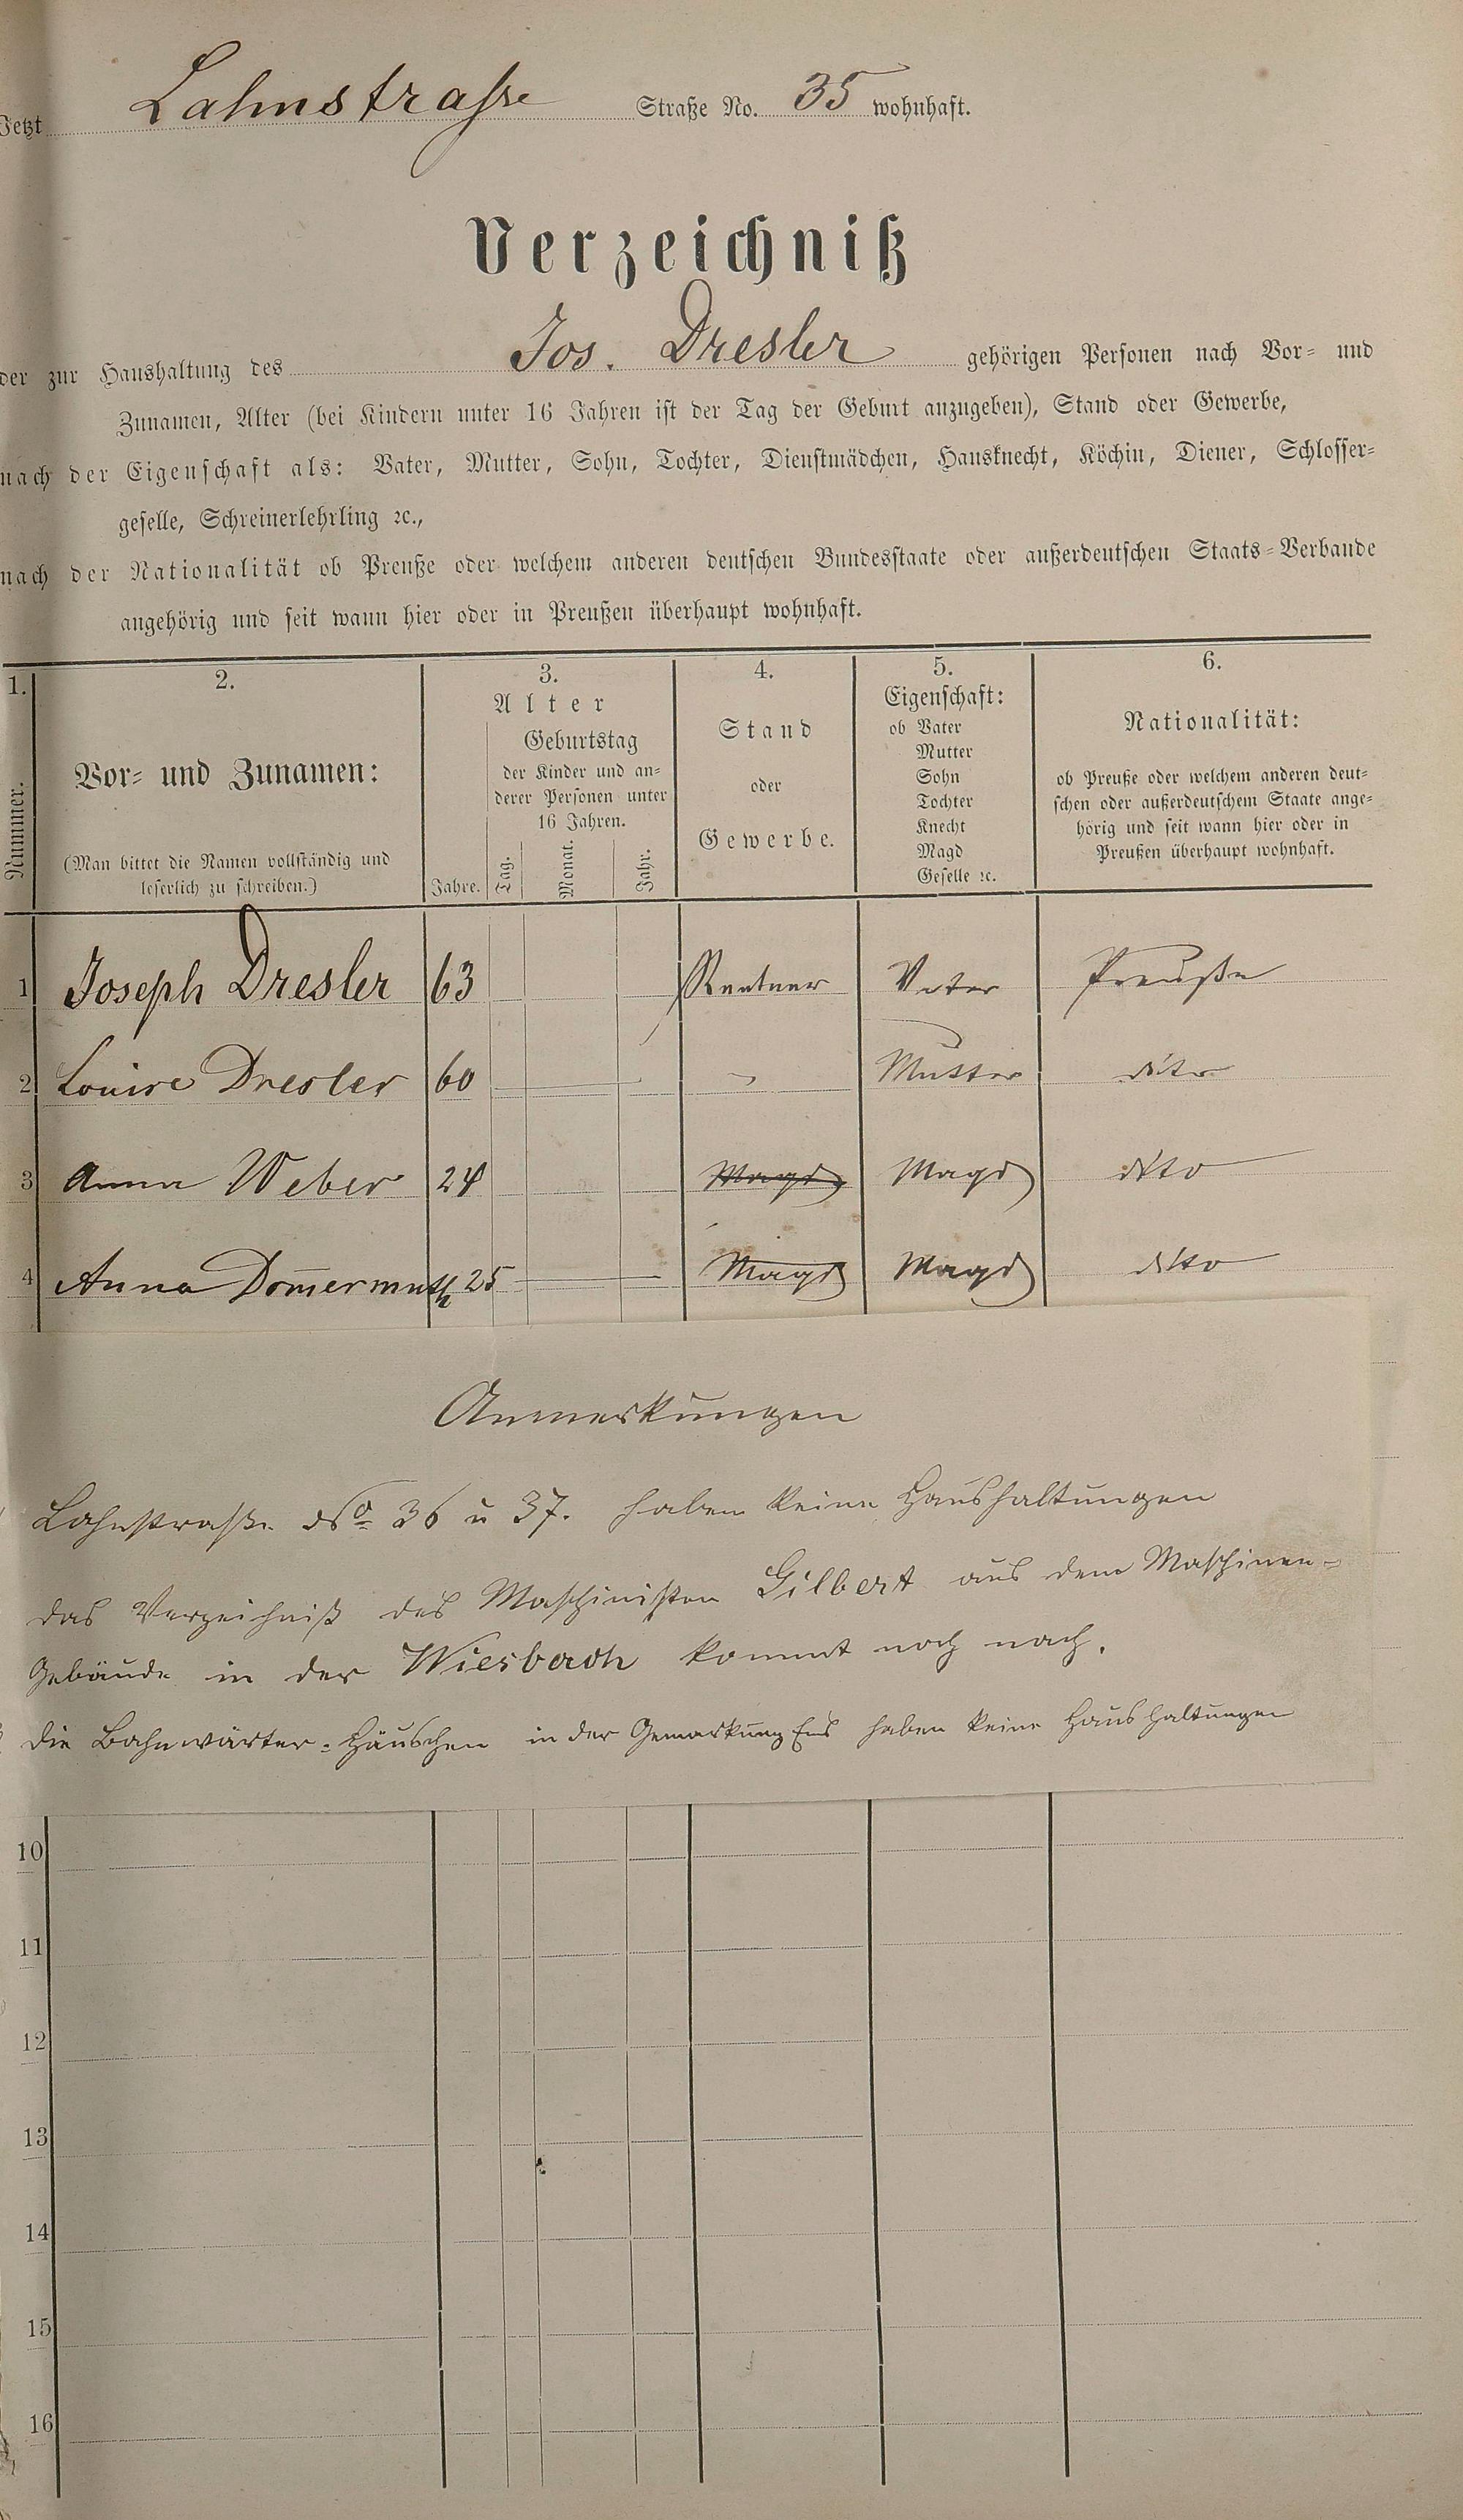 Jetzt Lahnstraße Straße No. 35 wohnhaft.
Verzeichniß
der zur Haushaltung des Jos. Dresler gehörigen Personen nach Vor- und
Zunamen, Alter (bei Kindern unter 16 Jahren ist der Tag der Geburt anzugeben), Stand oder Gewerbe,
nach der Eigenschaft als: Vater, Mutter, Sohn, Tochter, Dienstmädchen, Hausknecht, Köchin, Diener, Schlosser-
geselle, Schreinerlehrling ꝛc.,
nach der Nationalität ob Preuße oder welchem anderen deutschen Bundesstaate oder außerdeutschen Staats-Verbande
angehörig und seit wann hier oder in Preußen überhaupt wohnhaft.
1.
Nummer.
2.
Vor- und Zunamen:
(Man bittet die Namen vollständig und
leserlich zu schreiben.)
3.
Alter
Jahre.
Geburtstag
der Kinder und an-
derer Personen unter
16 Jahren.
Tag. Monat. Jahr.
4.
Stand
oder
Gewerbe.
5.
Eigenschaft:
ob Vater
Mutter
Sohn
Tochter
Knecht
Magd
Geselle ꝛc.
6.
Nationalität:
ob Preuße oder welchem anderen deut-
schen oder außerdeutschem Staate ange-
hörig und seit wann hier oder in
Preußen überhaupt wohnhaft.
1 Joseph Dresler 63 Rentner Vater Preuße
2 Louise Dresler 60 Mutter dito
3 Anna Weber 24 Magd Magd ditto
4 Anna Dom̄ermuth 25 Magd Magd ditto
Anmerkungen
Lahnstraße No 36 u 37. haben keine Haushaltungen
das Verzeichniß des Maschinisten Gilbert aus dem Maschinen-
Gebäude in der Wiesbach kommt noch nach.
die Bahnwärter-Häuschen in der Gemarkung Ems haben keine Haushaltungen
10
11
12
13
14
15
16